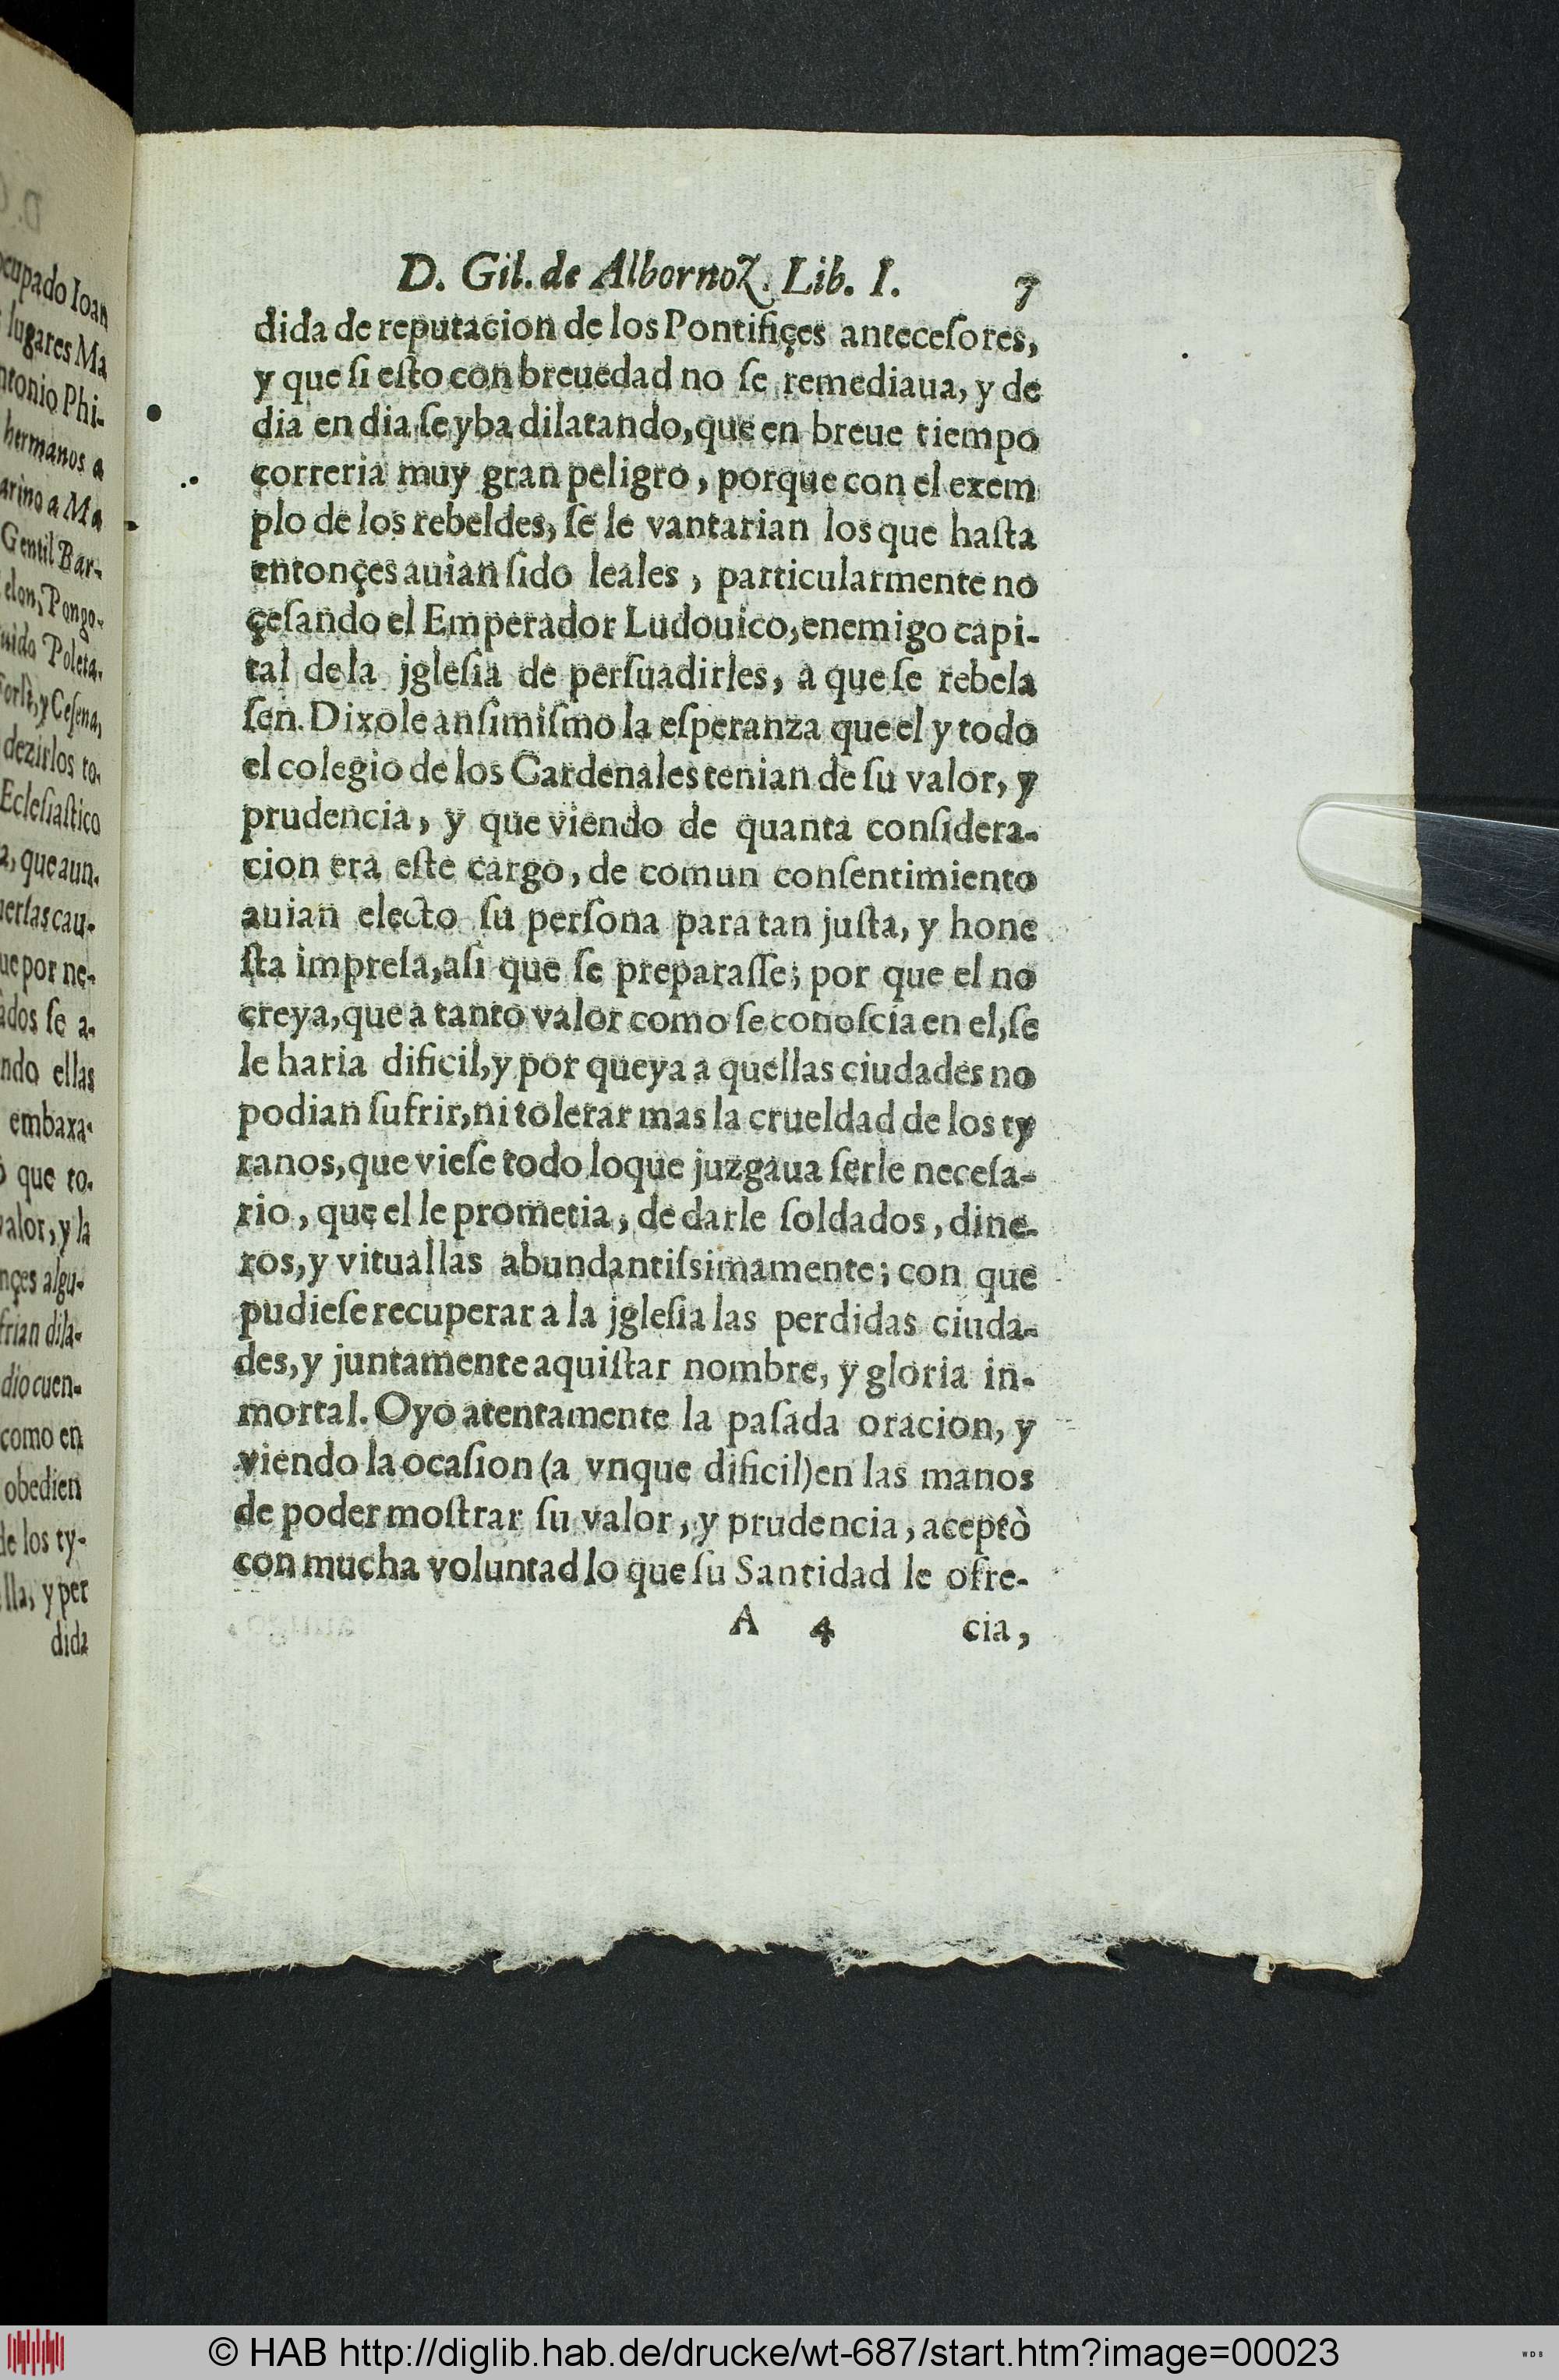 ocupado Ioan
lugares Ma
ntonio Phi-
hermanos a
arino a Ma
Gentil Bar-
elon, Pongo-
uido Polẽta,
orlì, y Cesena,
dezirlos to-
Eclesiaſtico
a, que aun-
uerſas cau-
ue por ne-
ados ſe a-
ndo ellas
embaxa-
o que to-
valor, y la
nçes algu-
frian dila-
dio cuen-
como en
obedien
de los ty-
lla, y per
dida
D. Gil. de Albornoz. Lib. I. 7
dida de reputacion de los Pontifiçes anteceſores,
y que ſi eſto con breuedad no ſe remediaua, y de
dia en dia ſe yba dilatando, que en breue tiempo
correria muy gran peligro, porque con el exem
plo de los rebeldes, ſe le vantarian los que haſta
entonçes auian ſido leales, particularmente no
çeſando el Emperador Ludouico, enemigo capi-
tal de la jgleſia de perſuadirles, a que ſe rebela
ſen. Dixole anſimiſmo la eſperanza que el y todo
el colegio de los Cardenales tenian de ſu valor, y
prudencia, y que viendo de quanta conſidera-
cion era eſte cargo, de comun conſentimiento
auian electo ſu perſona para tan juſta, y hone
ſta impreſa, aſi que ſe preparaſſe; por que el no
creya, que a tanto valor como ſe conoſcia en el, ſe
le haria dificil, y por que ya a quellas ciudades no
podian ſufrir, ni tolerar mas la crueldad de los ty
ranos, que vieſe todo loque juzgaua ſerle neceſa-
rio, que el le prometia, de darle ſoldados, dine-
ros, y vituallas abundantiſsimamente; con que
pudieſe recuperar a la jgleſia las perdidas ciuda-
des, y juntamente aquiſtar nombre, y gloria in-
mortal. Oyo atentamente la paſada oracion, y
viendo la ocaſion (a vnque dificil) en las manos
de poder moſtrar ſu valor, y prudencia, aceptò
con mucha voluntad lo que ſu Santidad le ofre-
A 4 cia,
© HAB http://diglib.hab.de/drucke/wt-687/start.htm?image=00023
WDB